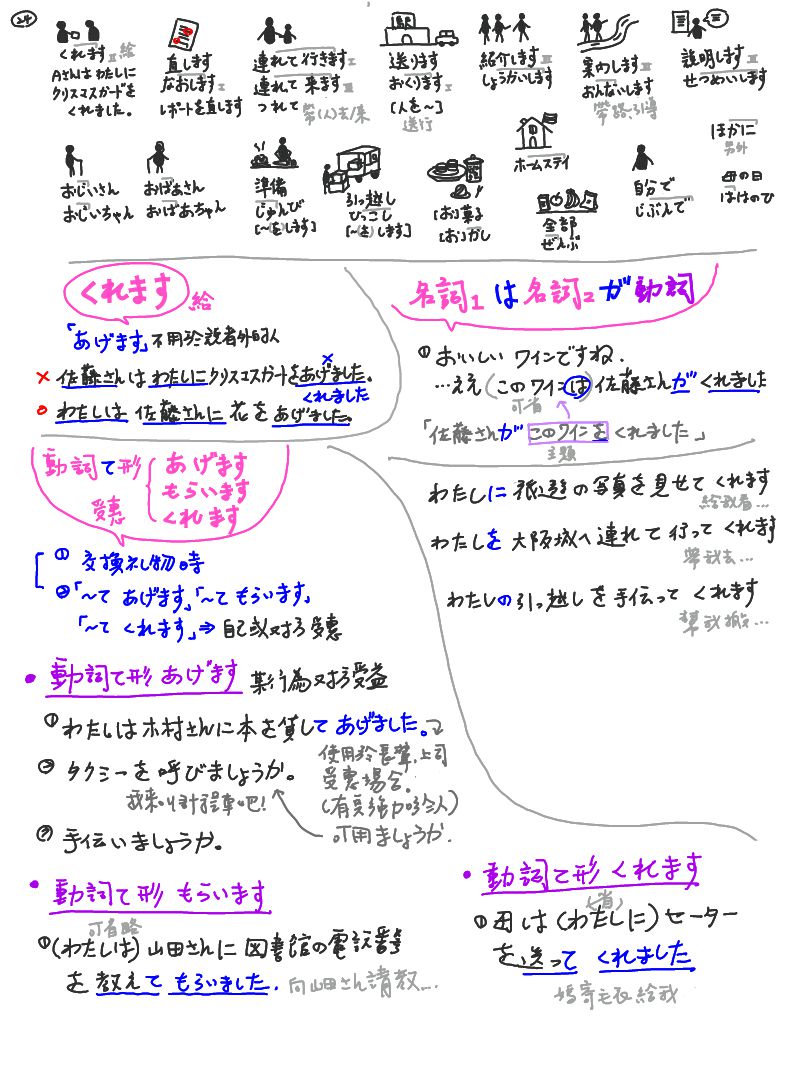 24
くれます II 給
Aさんは わたしに
クリスマスカードを
くれました。
直します
なおします I
レポートを直します
連れて行きます I
連れて 来ます III
つれて 帶(人)去/來
送ります
おくります I
[人を~]
送行
紹介します III
しょうかいします
案内します III
あんないします
帶路、引導
説明します III
せつめいします
おじいさん
おじいちゃん
おばあさん
おばあちゃん
準備
じゅんび
[~(を)します]
引っ越し
ひっこし
[~(を)します]
[お]菓子
[お]かし
ホームステイ
全部
ぜんぶ
自分で
じぶんで
ほかに
另外
母の日
ははのひ
くれます 給
「あげます」不用於説者外的人
× 佐藤さんは わたしに クリスマスカードを あげました。
×
くれました
○ わたしは 佐藤さんに 花を あげました。
名詞1 は 名詞2 が 動詞
① おいしい ワインですね.
…ええ (このワインは) 佐藤さんが くれました
可省
「佐藤さんが このワインを くれました」
主題
動詞て形 あげます
もらいます
受惠
くれます
① 交換礼物時
②「~て あげます」「~て もらいます」
「~て くれます」⇒ 自己或対方受惠
わたしに の写真を見せて くれます
給我看…
わたしを 大阪城へ 連れて 行って くれます
帶我去…
わたしの 引っ越し を 手伝って くれます
幫我搬…
• 動詞て形 あげます 某行為対方受益
① わたしは木村さんに本を貸して あげました。
② タクシーを 呼びましょうか。
我来叫計程車吧!
使用於長輩、上司
受惠場合.
可用ましょうか.
③ 手伝いましょうか。
• 動詞て形 もらいます
可省略
① (わたしは) 山田さんに 図書館の電話番号
を 教えて もらいました. 向山田さん請教…
• 動詞て形 くれます
(省)
① 母は (わたしに) セーター
を送って くれました
媽寄毛衣給我